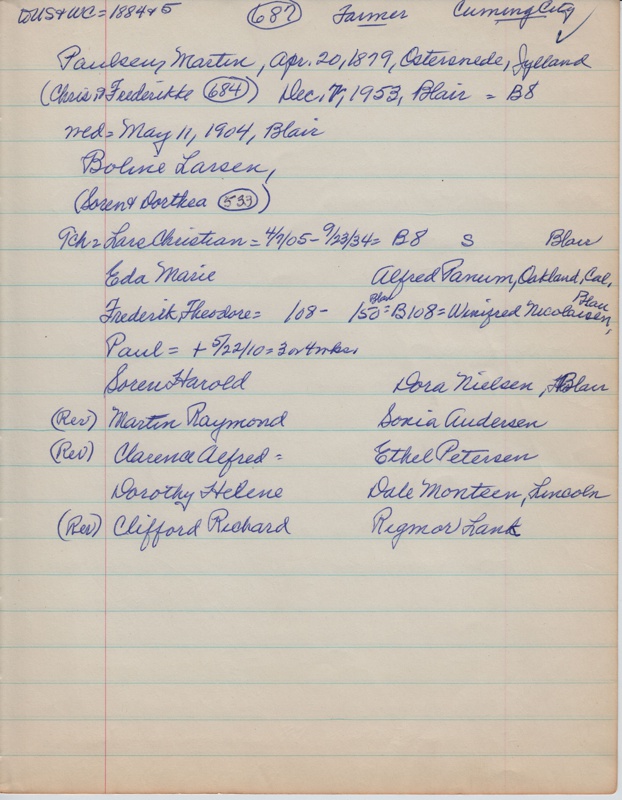 to US & WC = 1884 & 5 687 Farmer Cuming City
Paulsen, Martin, Apr. 20, 1879, Ostersnede, Jylland
(Chris & Frederikke 684) Dec. 1953, Blair = B8
wed = May 11, 1904, Blair
Boline Larsen,
(Soren & Dorthea 533)
9ch = Lars Christian = 4/7/05 - 9/23/34 = B8 S Blair
Eda Marie Alfred Panum, Oakland, Cal.
Frederik Theodore = /08 - /50 Blair = B108 = Winifred Nicolaisen, Blair
Paul = + 5/22/10 = 3 or 4 wks.
Soren Harold Dora Nielsen, Blair
(Rev) Martin Raymond Sonia Andersen
(Rev) Clarence Alfred = Ethel Petersen
Dorothy Helene Dale Monteen, Lincoln
(Rev) Clifford Richard Rigmor Lank